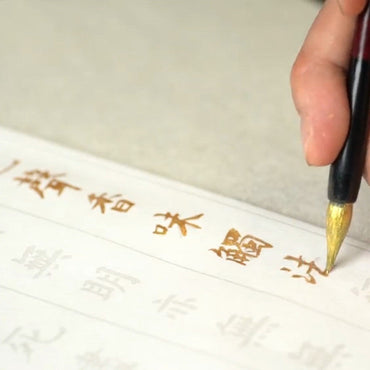 聲香味觸法
無明亦無無
死